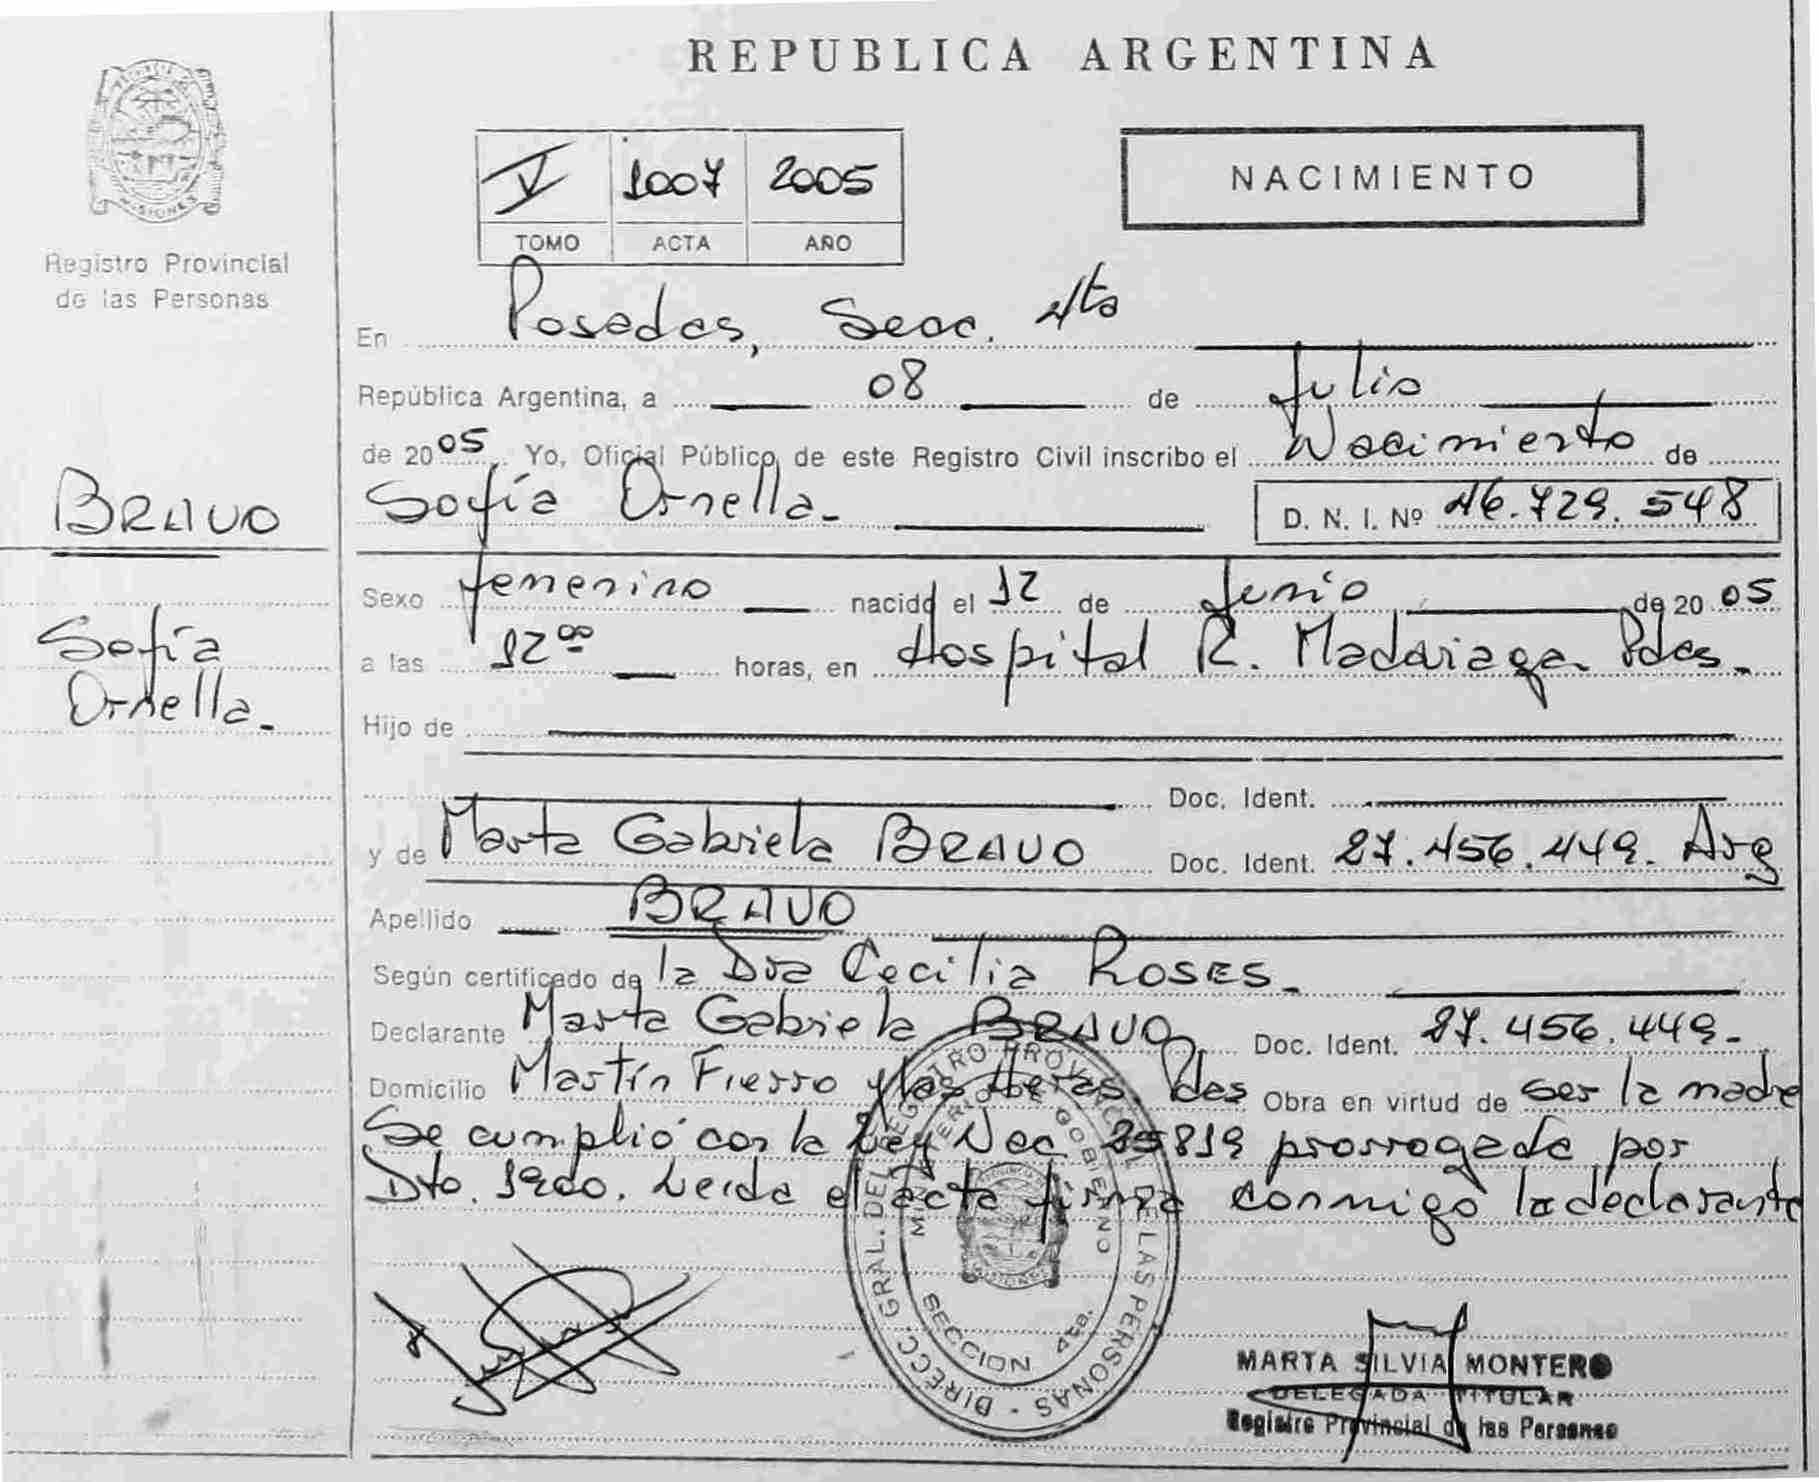 REPUBLICA ARGENTINA
PROVINCIA DE
MISIONES
Registro Provincial
de las Personas
V 1007 2005
TOMO ACTA AÑO
NACIMIENTO
En Posadas, Secc. 4ta
República Argentina, a 08 de Julio
de 2005 Yo, Oficial Público de este Registro Civil inscribo el Nacimiento de
BRAVO
Sofía Ornella D. N. I. Nº 46.729.548
Sexo femenino nacido el 12 de Junio de 2005
Sofía
Ornella
a las 12 00 horas, en Hospital R. Madariaga Pdas.
Hijo de
Doc. Ident.
y de Marta Gabriela BRAVO Doc. Ident. 27.456.449. Arg
Apellido BRAVO
Según certificado de la Dra Cecilia ROSES
Declarante Marta Gabriela BRAVO Doc. Ident. 27.456.449.
Domicilio Martín Fierro y las Heras. Pdas Obra en virtud de ser la madre
Se cumplió con la Ley Nac. 25819 prorrogada por
Dto. 1900. Leida el acta firma conmigo la declarante
DIRECC. GRAL. DEL REGISTRO PROVINCIAL DE LAS PERSONAS
MINISTERIO DE GOBIERNO
SECCION 4ta.
MARTA SILVIA MONTERO
DELEGADA TITULAR
Registro Provincial de las Personas